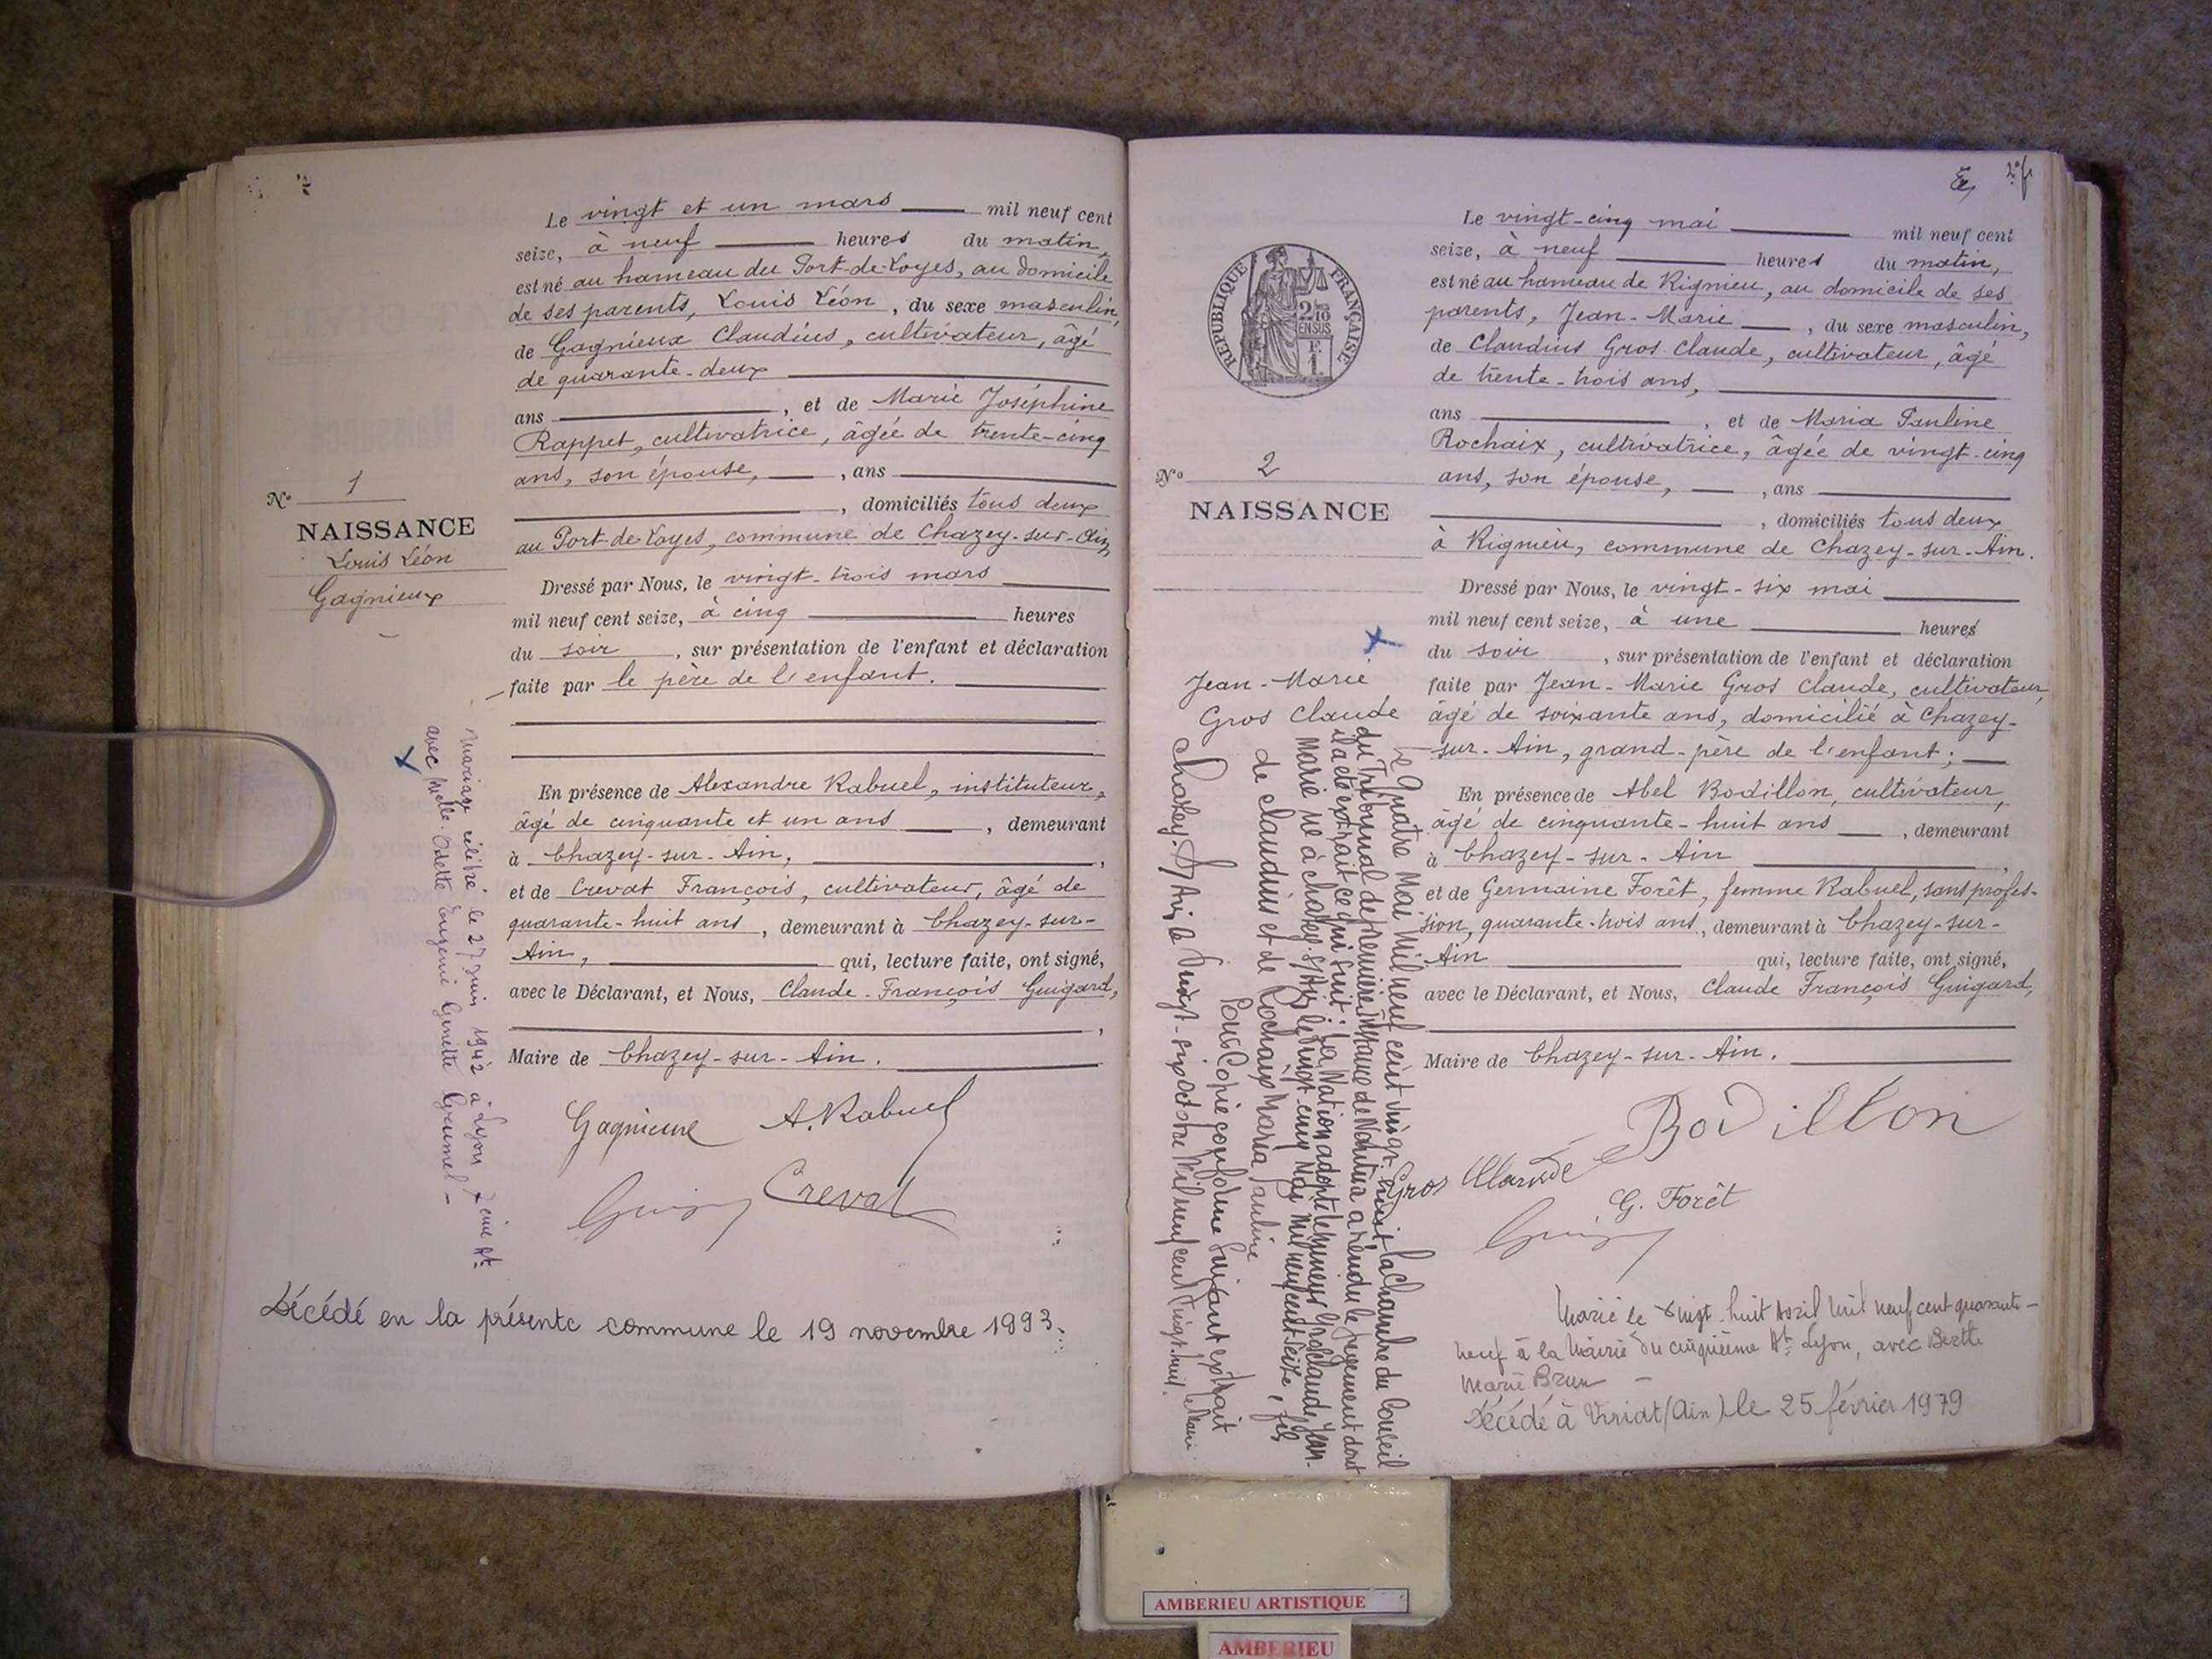 Le vingt et un mars mil neuf cent
seize, à neuf heures du matin,
est né au hameau du Port-de-Loyes, au domicile
de ses parents, Louis Léon, du sexe masculin,
de Gagnieux Claudius, cultivateur, âgé
de quarante-deux
ans, et de Marie Joséphine
Rappet, cultivatrice, âgée de trente-cinq
ans, son épouse, , ans
, domiciliés tous deux
au Port-de-Loyes, commune de Chazey-sur-Ain,
Dressé par Nous, le vingt-trois mars
mil neuf cent seize, à cinq heures
du soir, sur présentation de l'enfant et déclaration
faite par le père de l'enfant.
En présence de Alexandre Rabuel, instituteur,
âgé de cinquante et un ans, demeurant
à Chazey-sur-Ain,
et de Crevat François, cultivateur, âgé de
quarante-huit ans, demeurant à Chazey-sur-
Ain, qui, lecture faite, ont signé,
avec le Déclarant, et Nous, Claude-François Guigard,
Maire de Chazey-sur-Ain.
Gagnieux A. Rabuel
Crevat
N° 1
NAISSANCE
Louis Léon
Gagnieux
mariage célébré le 27 juin 1942 à Lyon 7ème At
avec Melle Odette Eugénie Ginette
Décédé en la présente commune le 19 novembre 1993.
RÉPUBLIQUE FRANÇAISE
2/10
EN SUS
F.
1.
N° 2
NAISSANCE
Jean-Marie
Gros Claude
Le vingt-cinq mai mil neuf cent
seize, à neuf heures du matin,
est né au hameau de Rignieu, au domicile de ses
parents, Jean-Marie, du sexe masculin,
de Claudius Gros Claude, cultivateur, âgé
de trente-trois ans,
ans, et de Maria Pauline
Rochaix, cultivatrice, âgée de vingt-cinq
ans, son épouse, , ans
, domiciliés tous deux
à Rignieu, commune de Chazey-sur-Ain.
Dressé par Nous, le vingt-six mai
mil neuf cent seize, à une heures
du soir, sur présentation de l'enfant et déclaration
faite par Jean-Marie Gros Claude, cultivateur,
âgé de soixante ans, domicilié à Chazey-
sur-Ain, grand-père de l'enfant;
En présence de Abel Bodillon, cultivateur,
âgé de cinquante-huit ans, demeurant
à Chazey-sur-Ain
et de Germaine Forêt, femme Rabuel, sans profes-
sion, quarante-trois ans, demeurant à Chazey-sur-
Ain qui, lecture faite, ont signé,
avec le Déclarant, et Nous, Claude François Guigard,
Maire de Chazey-sur-Ain.
Bodillon
Gros Claude
G. Forêt
Le Quatre Mai Mil neuf cent vingt-huit la Chambre du Conseil
du Tribunal de première Instance de Nantua a rendu le jugement dont
il a été extrait ce qui suit: La Nation adopte le mineur Gros Claude, Jean-
Marie né à Chazey-s/Ain le vingt-cinq Mai Mil neuf cent seize, fils
de Claudius et de Rochaix Maria Pauline
Pour Copie conforme suivant extrait
Chazey-s/Ain le vingt-six Octobre Mil neuf cent vingt-huit. Le Maire
Marié le vingt-huit Avril mil neuf cent quarante-
neuf à la Mairie du cinquième At Lyon, avec Berthe
Marie Brun
Décédé à Viriat (Ain) le 25 février 1979
AMBERIEU ARTISTIQUE
AMBERIEU